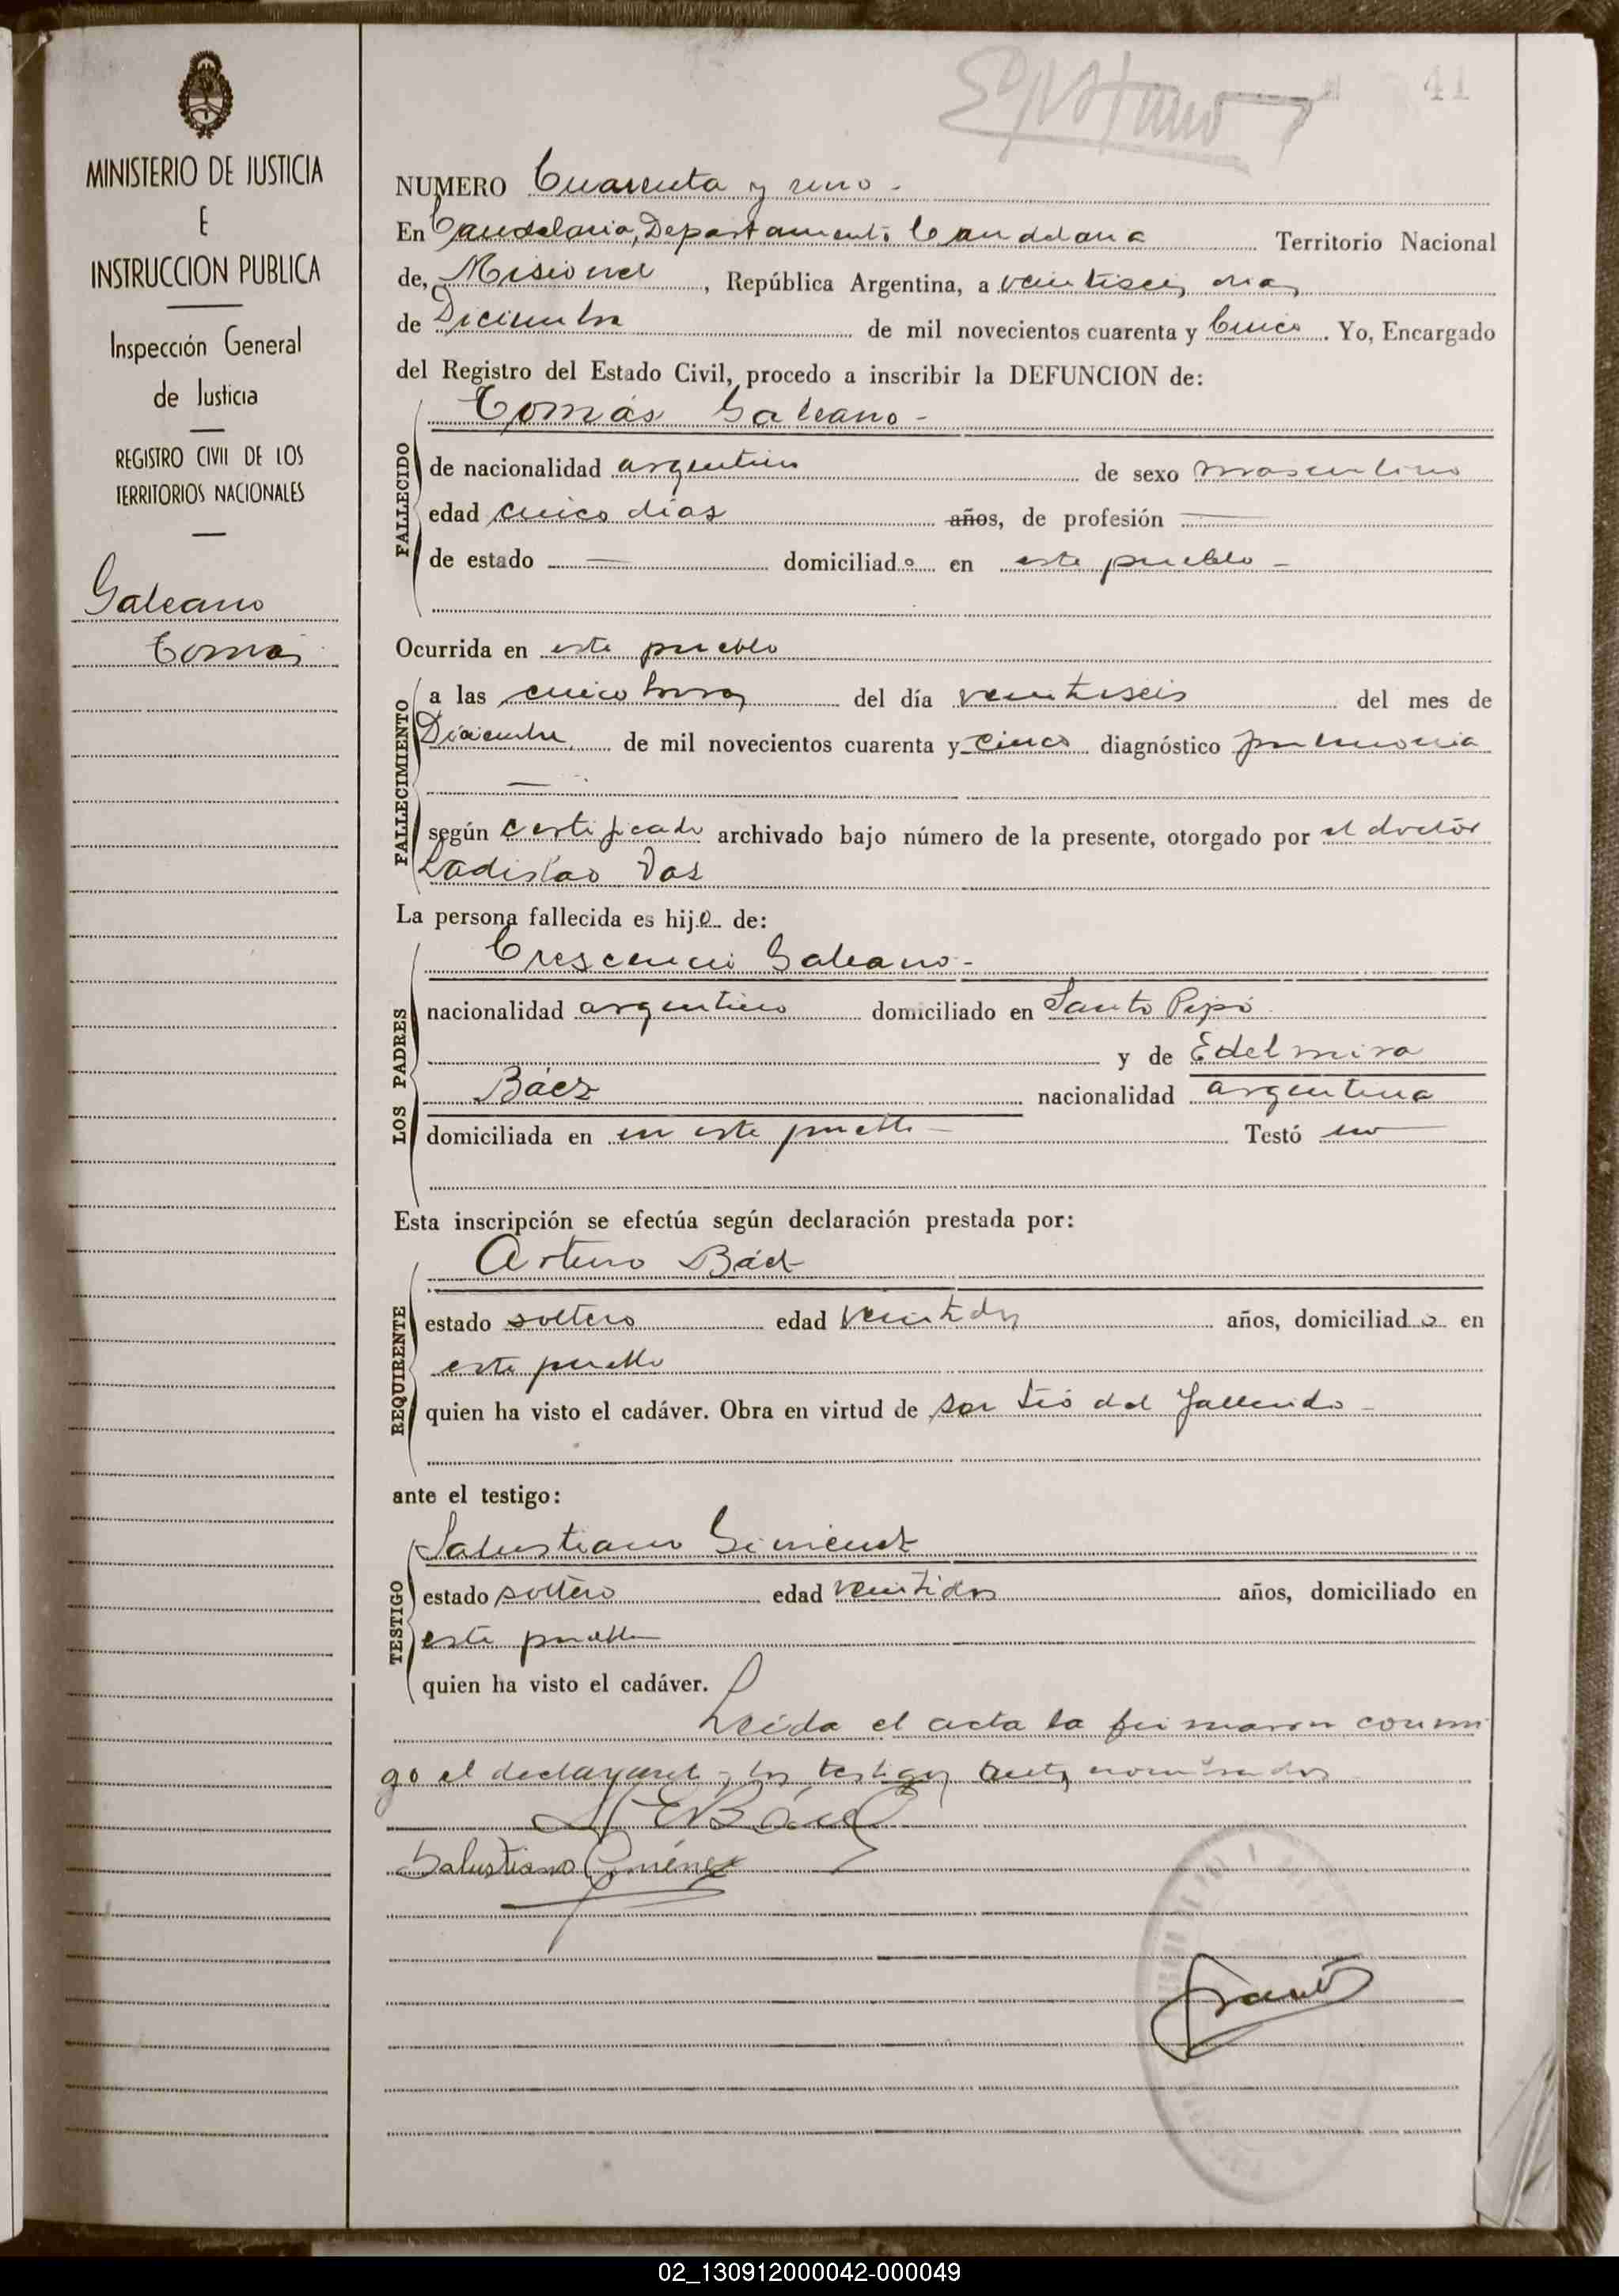 41
MINISTERIO DE JUSTICIA
E
INSTRUCCION PUBLICA
Inspección General
de Justicia
REGISTRO CIVIL DE LOS
TERRITORIOS NACIONALES
Galeano
Tomás
NUMERO Cuarenta y uno -
En Candelaria, Departamento Candelaria Territorio Nacional
de, Misiones, República Argentina, a veintiseis dias
de Diciembre de mil novecientos cuarenta y Cinco. Yo, Encargado
del Registro del Estado Civil, procedo a inscribir la DEFUNCION de:
Tomás Galeano -
FALLECIDO
de nacionalidad argentino de sexo masculino
edad cinco días años, de profesión —
de estado — domiciliado en este pueblo -
Ocurrida en este pueblo
FALLECIMIENTO
a las cinco horas del día veintiseis del mes de
Diciembre de mil novecientos cuarenta y cinco diagnóstico pulmonia
—
según certificado archivado bajo número de la presente, otorgado por el doctor
Ladislao
La persona fallecida es hijo de:
LOS PADRES
Crescencio Galeano -
nacionalidad argentino domiciliado en Santo Pipó
y de Edelmira
Báez nacionalidad argentina
domiciliada en en este pueblo - Testó no
Esta inscripción se efectúa según declaración prestada por:
REQUIRENTE
Arturo Báez
estado soltero edad veintidos años, domiciliado en
este pueblo
quien ha visto el cadáver. Obra en virtud de ser tió del fallecido -
ante el testigo:
TESTIGO
Salustiano Gimenez
estado soltero edad veintidos años, domiciliado en
este pueblo
quien ha visto el cadáver.
Leída el acta la firmaron conmi
go el declarante y los testigos antes nombrados
Salustiano Giménez
02_130912000042-000049